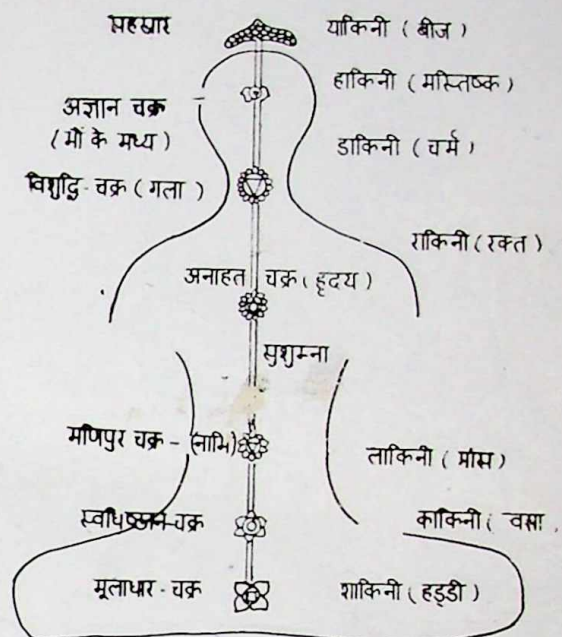 सहस्रार
याकिनी ( बीज )
हाकिनी ( मस्तिष्क )
अज्ञान चक्र
( भौं के मध्य )
डाकिनी ( चर्म )
विशुद्धि - चक्र ( गला )
राकिनी ( रक्त )
अनाहत चक्र ( हृदय )
सुशुम्ना
मणिपुर चक्र - (नाभि)
लाकिनी ( मांस )
स्वधिष्ठान-चक्र
काकिनी ( वसा
मूलाधार - चक्र
शाकिनी ( हड्डी )